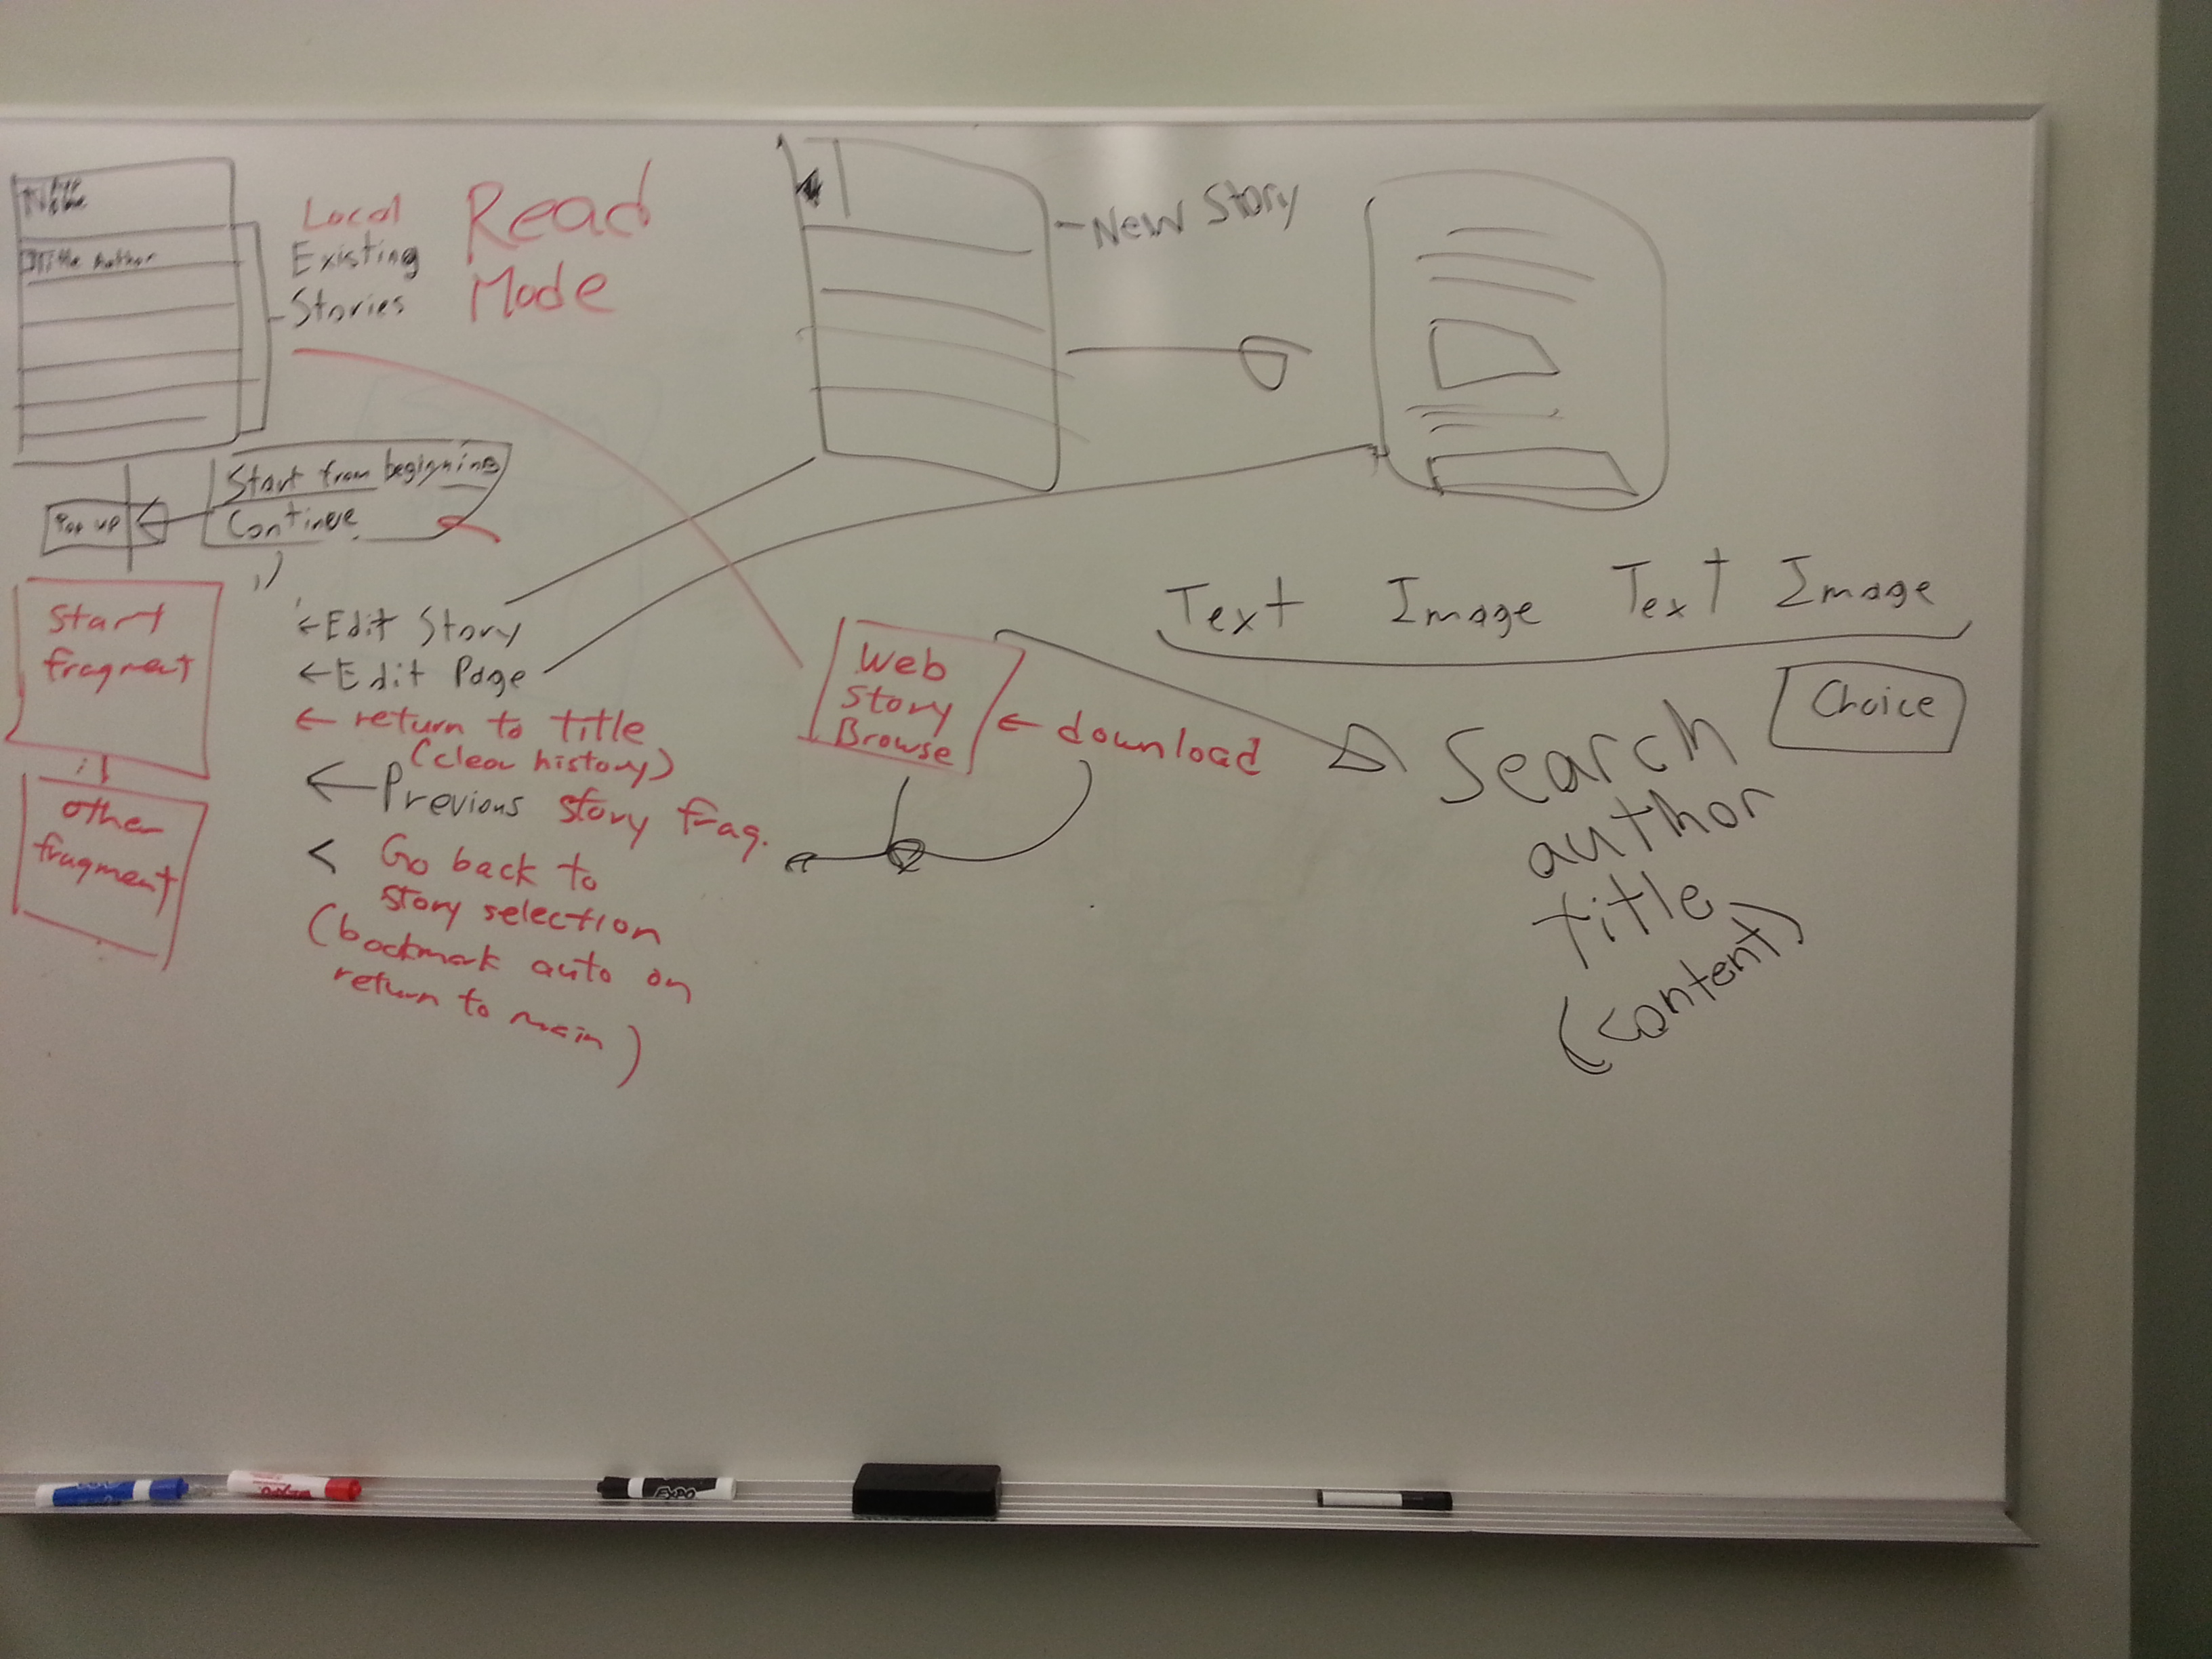 Title Author
Local
Existing
Stories
Read
Mode
Start from begigning
Continue
Pop up
Start
fragment
other
fragment
← Edit Story
← Edit Page
← return to title
(clear history)
← Previous story frag.
< Go back to
story selection
(bookmark auto on
return to main)
- New Story
Web
Story
Browse
← download
Text Image Text Image
Choice
Search
author
title
(content)
EXPO